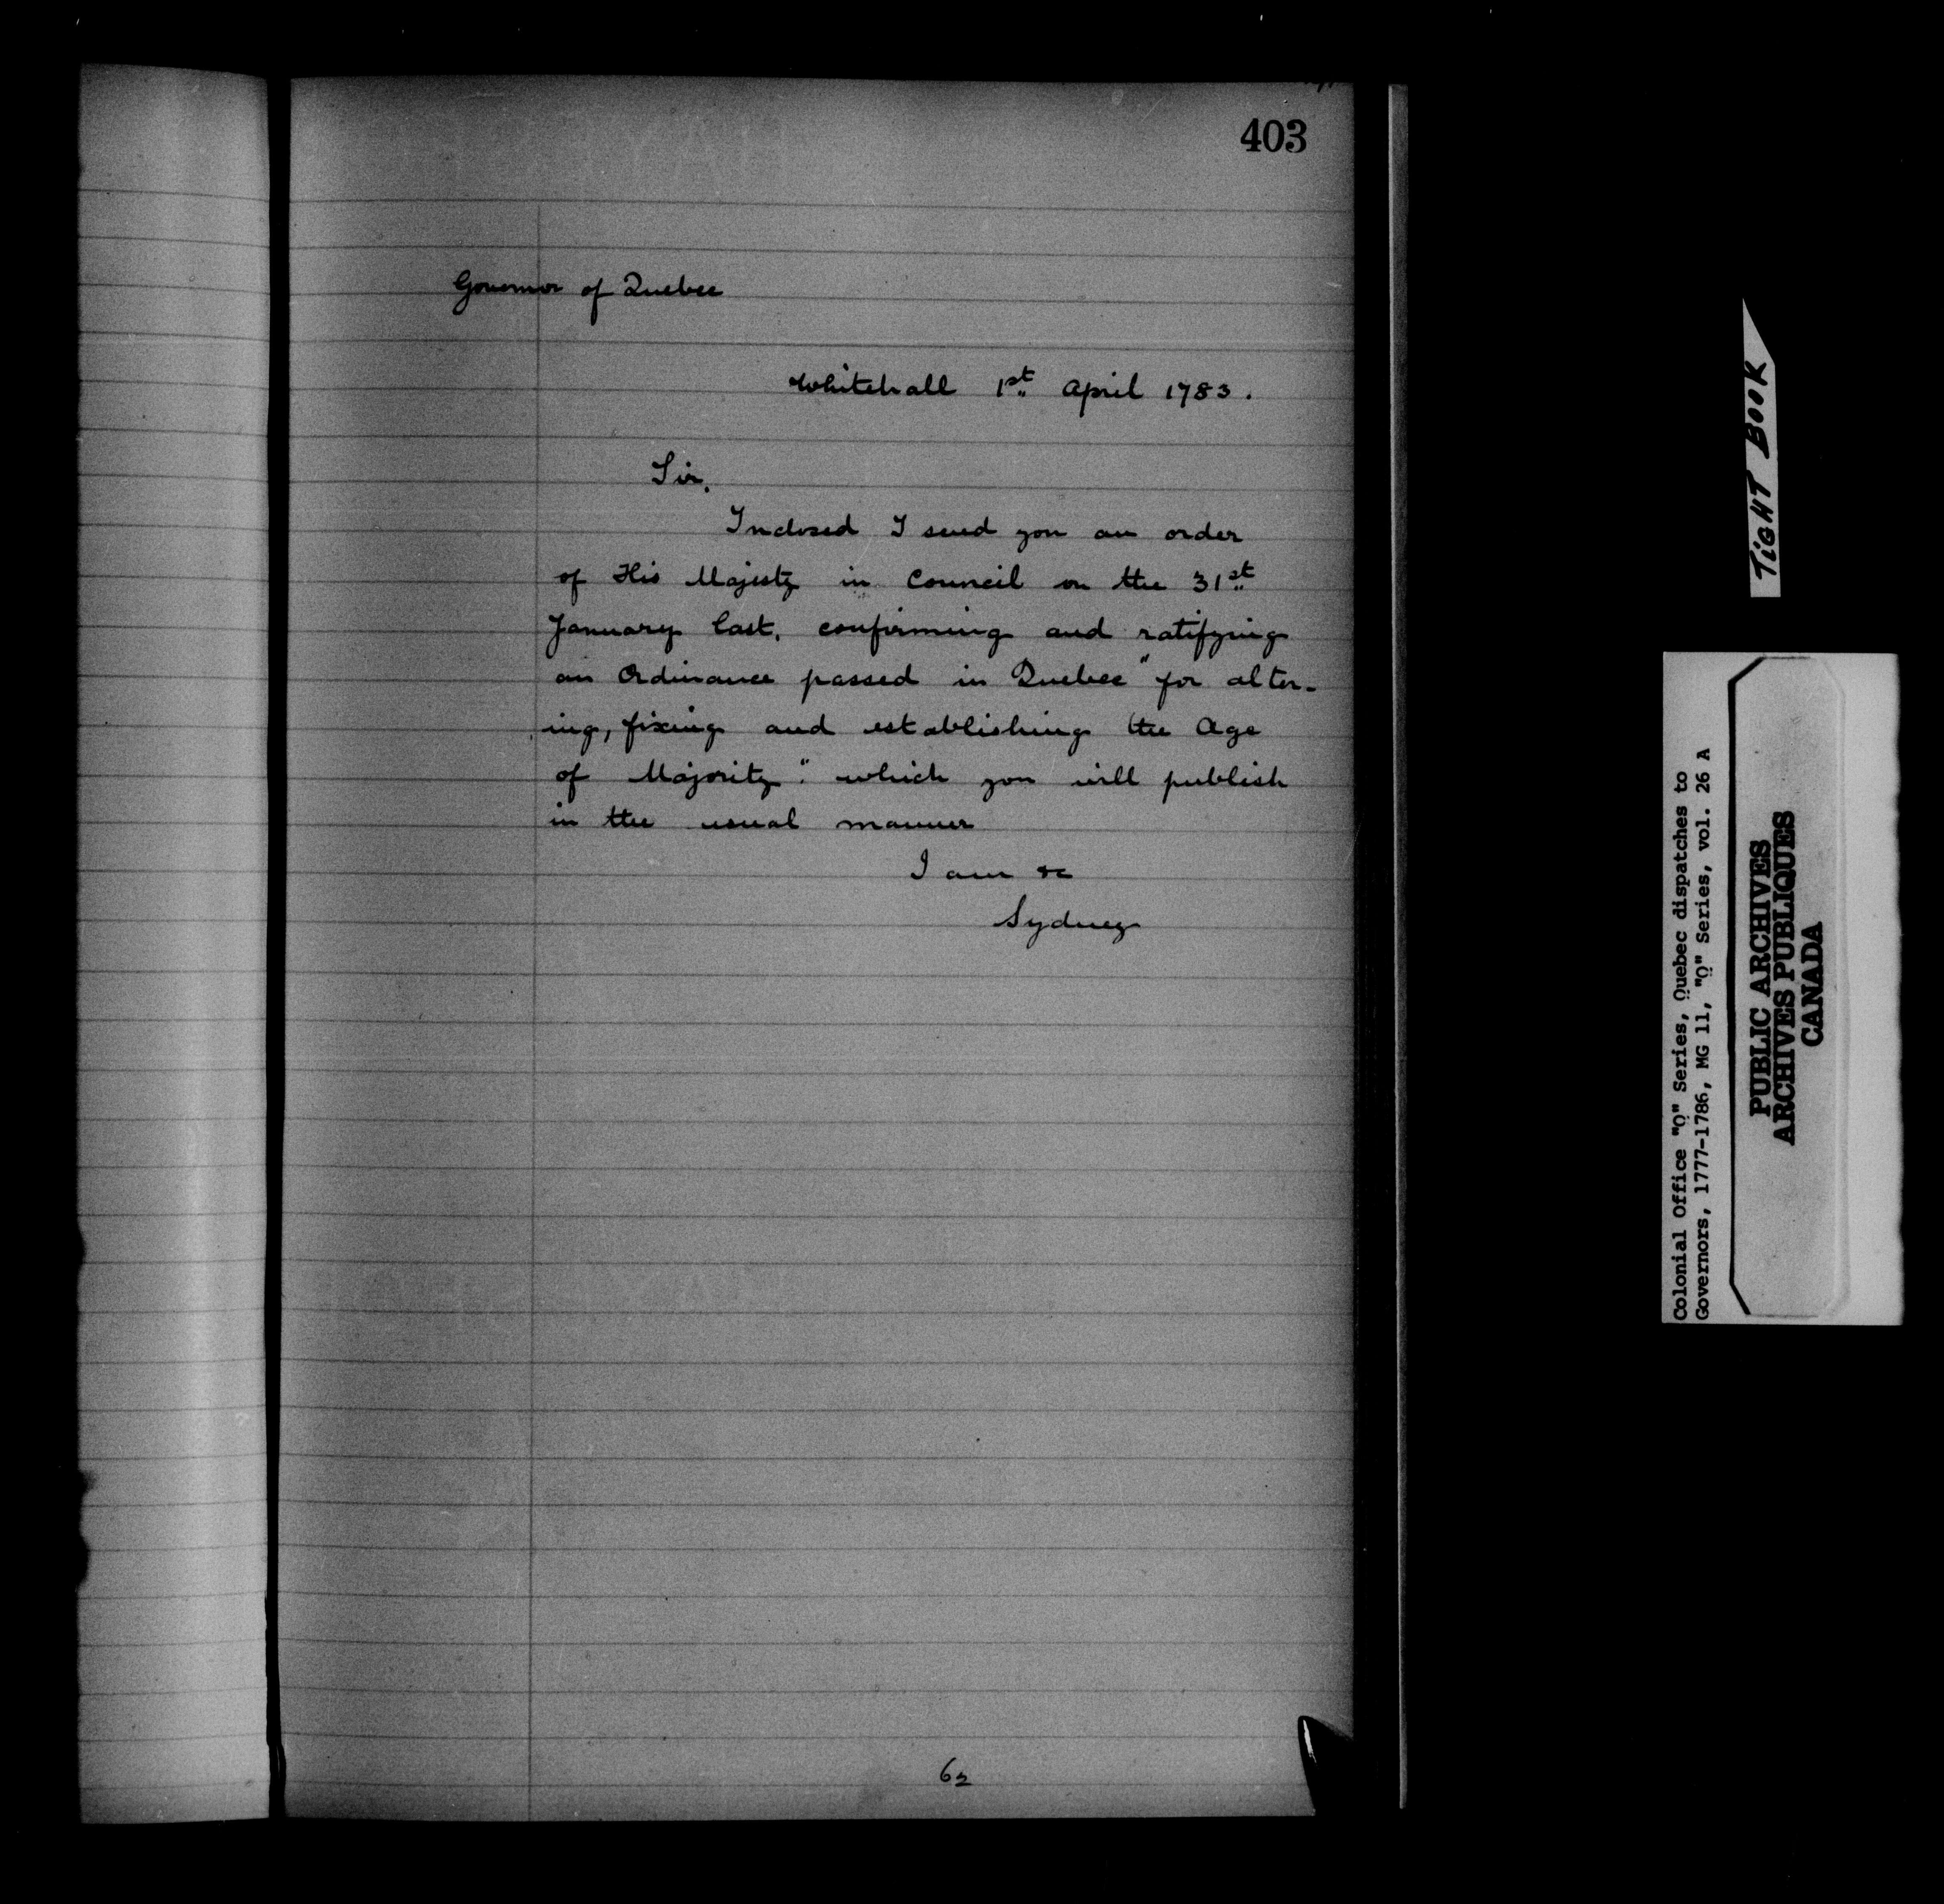 403
Governor of Quebec
Whitehall 1st April 1783.
Sir,
Inclosed I send you an order
of His Majesty in Council on the 31st
January last, confirming and ratifying
an Ordinance passed in Quebec "for alter-
ing, fixing and establishing the Age
of Majority": which you will publish
in the usual manner
I am &c
Sydney
62
TIGHT BOOK
Colonial Office "Q" Series, Quebec dispatches to
Governors, 1777-1786, MG 11, "Q" Series, vol. 26 A
PUBLIC ARCHIVES
ARCHIVES PUBLIQUES
CANADA